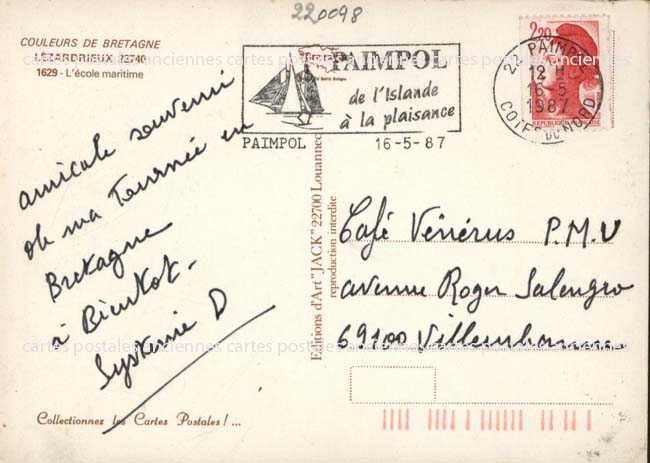 220098
COULEURS DE BRETAGNE
LÉZARDRIEUX 22740
1629 - L'école maritime
PAIMPOL
de l'Islande
à la plaisance
PAIMPOL 16-5-87
2,20
22 PAIMPOL
12 H
16-5
1987
COTES DU NORD
REPUBLIQUE
amicale souvenir
de ma Tournée en
Bretagne
à Bientot -
Système D
Editions d'Art "JACK" 22700 Louannec
reproduction interdite
Café Vénérus P.M.U
avenue Roger Salengro
69100 Villeurbanne
cartes postales anciennes cartes postales anciennes cartes postales anciennes
cartes postales anciennes cartes postales anciennes cartes postales anciennes
Collectionnez les Cartes Postales ! ...